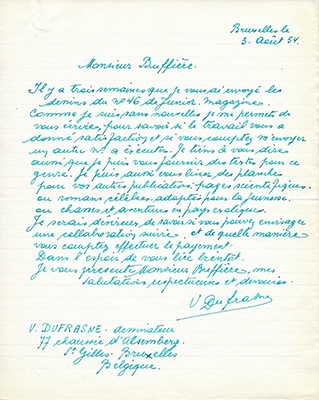 Bruxelles le
3. Août 54.
Monsieur Buffière.
Il y a trois semaines que je vous ai envoyé les
dessins du n° 46 de Junior. Magazine.
Comme je suis sans nouvelles je me permets de
vous écrire, pour savoir si le travail vous a
donné satisfaction et si vous comptez m'envoyer
un autre n° a éxécuter. Je tiens à vous dire
aussi que je puis vous fournir des textes pour ce
genre. Je puis aussi vous livrer des planches
pour vos autres publications: pages scientifiques.
ou romans célèbres, adaptés pour la jeunesse.
ou chasses et aventures en pays exotiques.
Je serais désireux de savoir si vous pouvez envisager
une collaboration suivie. et de quelle manière
vous comptez effectuer le payement.
Dans l'espoir de vous lire bientot.
Je vous présente, Monsieur Buffière, mes
salutations respectueuses et dévouées.
V. Dufrasne
V. DUFRASNE - dessinateur
77 chaussée d'Alsemberg.
St Gilles. Bruxelles
Belgique.